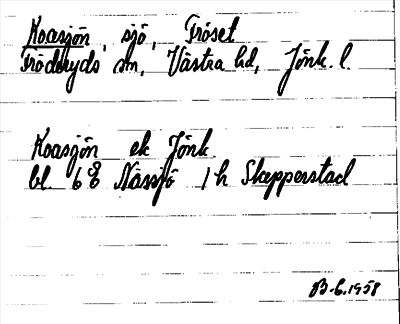 Koasjön, sjö, Fröset
Fröderyds sn, Västra hd, Jönk. l.
Koasjön ek Jönk
bl. 6E Nässjö 1h Skepperstad
B-6.1958